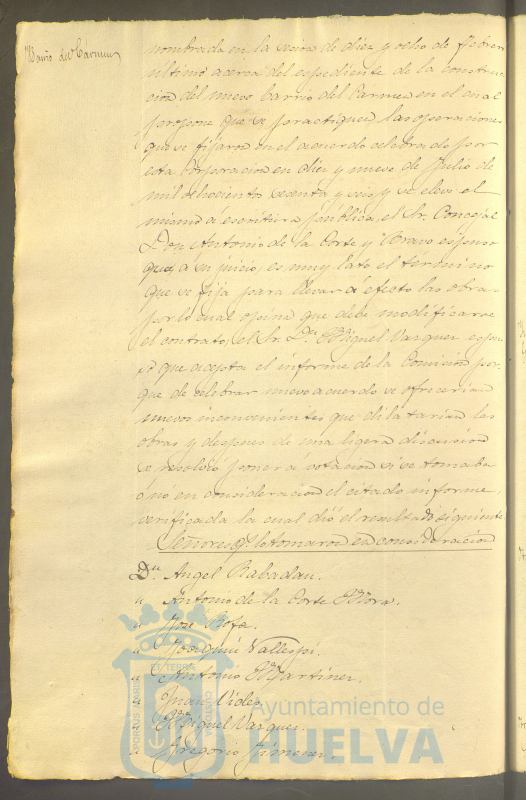 Barrio del Cármen
nombrada en la sesion de diez y ocho de Febrero
último acerca del espediente de la construc-
cion del nuevo barrio del Carmen en el cual
propone que se practiquen las operaciones
que se fijaron en el acuerdo celebrado por
esta Corporacion en diez y nueve de Julio de
mil ochocientos setenta y seis y se eleve el
mismo a escritura pública, el Sr. Concejal
Don Antonio de la Corte y Bravo espuso
que, á su juicio, es muy lato el termino
que se fija para llevar á efecto las obras
por lo cual opina que debe modificarse
el contrato, el Sr. Dn. Miguel Vazquez espu-
so que acepta el informe de la Comision por-
que de celebrar nuevo acuerdo se ofrecerian
nuevos inconvenientes que dilatarian las
obras y despues de una ligera discusion
se resolvió poner á votacion si se tomaba
ó nó en consideracion el citado informe,
verificada la cual dió el resultado siguiente
Señores qe. lo tomaron en consideracion
Dn. Angel Rabadan.
" Antonio de la Corte Mora.
" José Rofa.
" Joaquin Vallespi.
" Antonio Martinez.
" Juan Vides
" Miguel Vazquez.
" Gregorio Jimenez.
Ayuntamiento de
HUELVA
PORTUS MARIS
ET TERRÆ
CUSTODIA